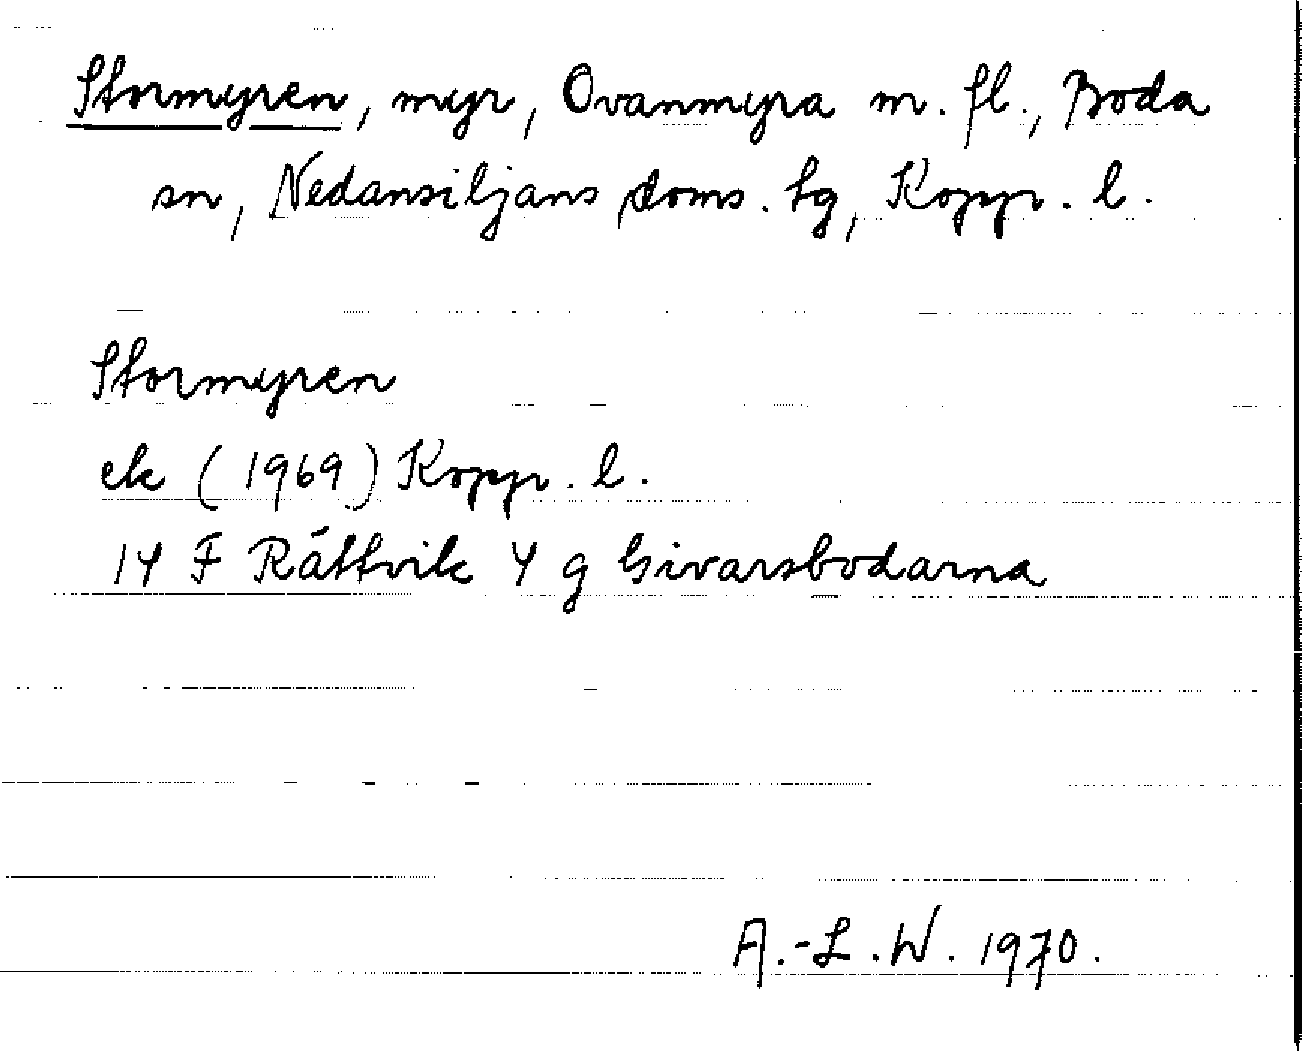 Stormyren, myr, Ovanmyra m. fl., Boda
sn, Nedansiljans doms. tg, Kopp. l.
Stormyren
ek (1969) Kopp. l.
14 F Rättvik 4 g Givarsbodarna
A.-L.W. 1970.